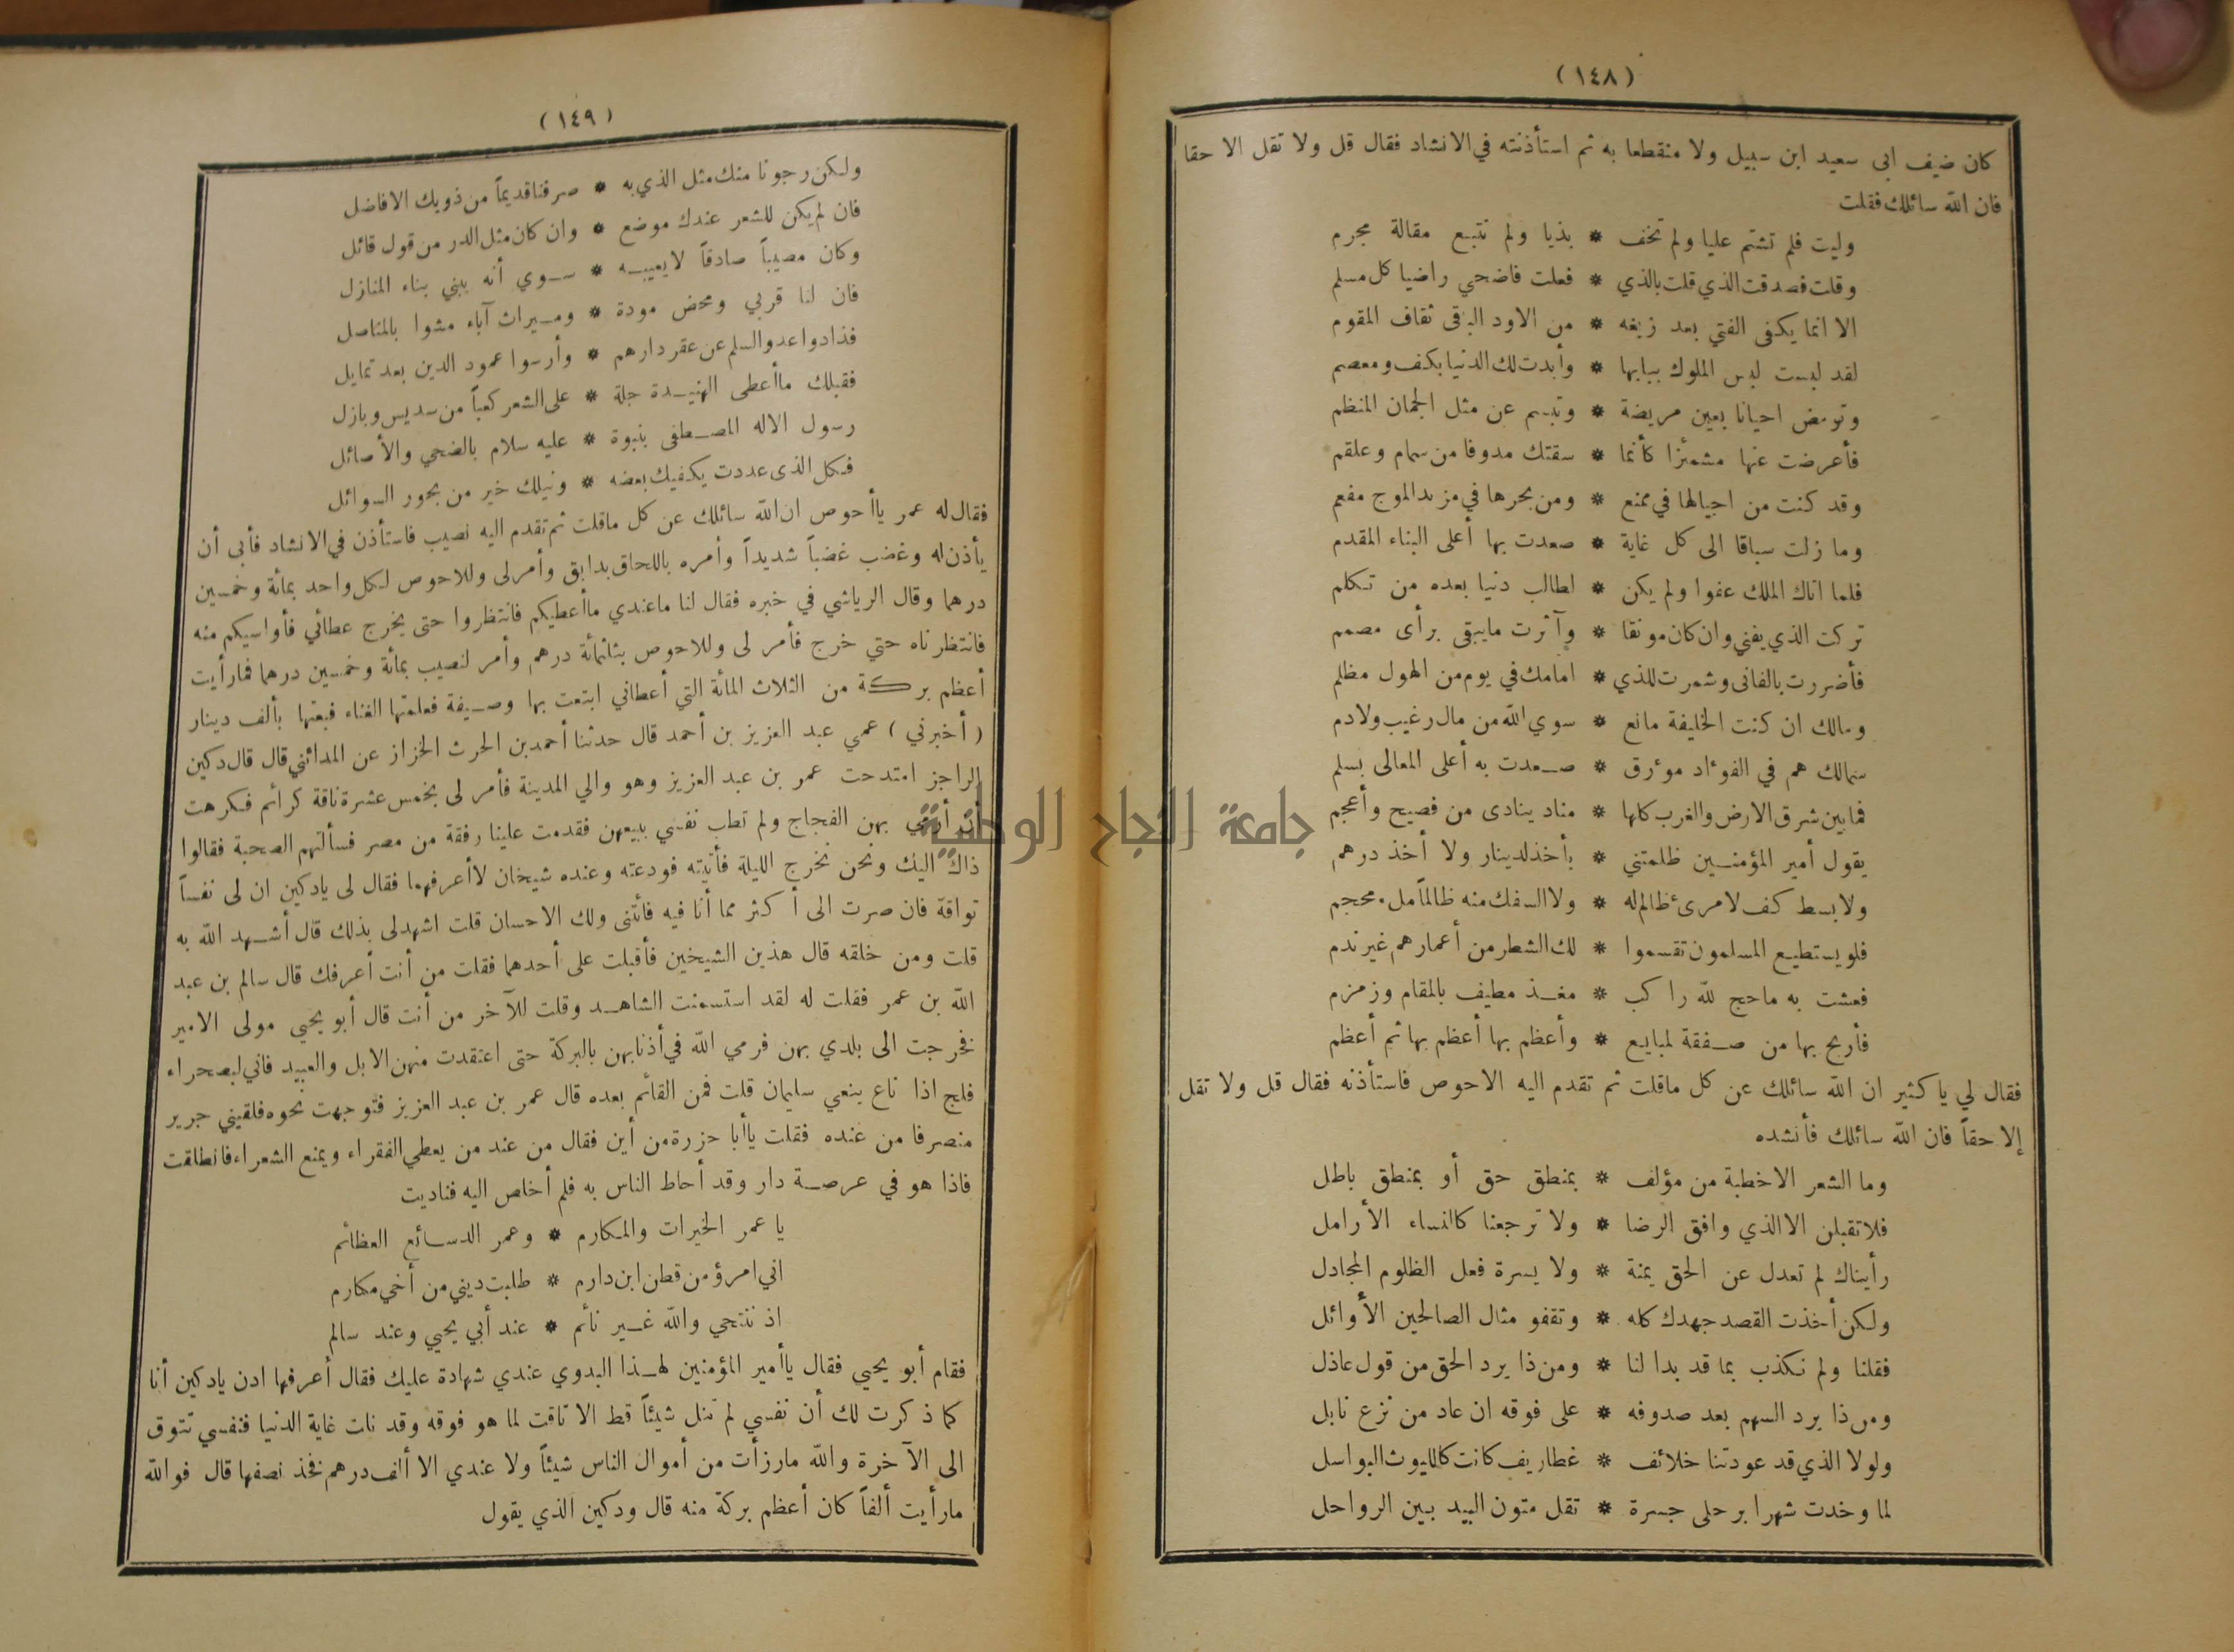 (١٤٨)
كان ضيف ابى سعيد ابن سبيل ولا منقطعا به ثم استأذنته في الانشاد فقال قل ولا تقل الا حقا
فان الله سائلك فقلت
وليت فلم تشتم عليا ولم تخف * بذيا ولم تتبع مقالة مجرم
وقلت فصدقت الذي قلت بالذي * فعلت فاضحي راضيا كل مسلم
الا انما يكفى الفتي بعد زيغه * من الاود البقى ثقاف المقوم
لقد لبست لبس الملوك ببابها * وأبدت لك الدنيا بكف ومعصم
وتومض احيانا بعين مريضة * وتبسم عن مثل الجمان المنظم
فأعرضت عنها مشمئزا كأنما * سقتك مدوفا من سمام وعلقم
وقد كنت من اجبالها في ممنع * ومن بحرها في مزبد الموج مفعم
وما زلت سباقا الى كل غاية * صعدت بها أعلى البناء المقدم
فلما اتاك الملك عفوا ولم يكن * لطالب دنيا بعده من تكلم
تركت الذي يفني وان كان مونقا * وآثرت مايبقى برأى مصمم
فأضررت بالفانى وشمرت للذي * امامك في يوم من الهول مظلم
ومالك ان كنت الخليفة مانع * سوي الله من مال رغيب ولادم
سمالك هم في الفوءاد موءرق * صعدت به أعلى المعالى بسلم
فمابين شرق الارض والغرب كلها * مناد ينادى من فصيح وأعجم
يقول أمير المؤمنين ظلمتني * بأخذ لدينار ولا أخذ درهم
ولا بسط كف لامرئ ظالم له * ولا السفك منه ظالماً ملء محجم
فلو يستطيع المسلمون تقسموا * لك الشطر من أعمارهم غير ندم
فعشت به ماحج لله راكب * مغذ مطيف بالمقام وزمزم
فأربح بها من صفقة لمبايع * وأعظم بها أعظم بها ثم أعظم
فقال لي يا كثير ان الله سائلك عن كل ماقلت ثم تقدم اليه الاحوص فاستأذنه فقال قل ولا تقل
إلا حقاً فان الله سائلك فأنشده
وما الشعر الاخطبة من مؤلف * بمنطق حق أو بمنطق باطل
فلا تقبلن الا الذي وافق الرضا * ولا ترجعنا كالنساء الأرامل
رأيناك لم تعدل عن الحق يمنة * ولا يسرة فعل الظلوم المجادل
ولكن أخذت القصد جهدك كله * وتقفو مثال الصالحين الأوائل
فقلنا ولم نكذب بما قد بدا لنا * ومن ذا يرد الحق من قول عاذل
ومن ذا يرد السهم بعد صدوفه * على فوقه ان عاد من نزع نابل
ولولا الذي قد عودتنا خلائف * غطاريف كانت كالليوث البواسل
لما وخدت شهرا برحلى جسرة * تقل متون البيد بين الرواحل
(١٤٩)
ولكن رجونا منك مثل الذي به * صرفنا قديماً من ذويك الافاضل
فان لم يكن للشعر عندك موضع * وان كان مثل الدر من قول قائل
وكان مصيباً صادقاً لايعيبه * سوي أنه يبني بناء المنازل
فان لنا قربي ومحض مودة * وميراث آباء مشوا بالمناصل
فذادوا عدو السلم عن عقر دارهم * وأرسوا عمود الدين بعد تمايل
فقبلك ماأعطى الهنيدة جلة * على الشعر كعباً من سديس وبازل
رسول الاله المصطفى بنبوة * عليه سلام بالضحي والأصائل
فكل الذى عددت يكفيك بعضه * ونيلك خير من بحور السوائل
فقال له عمر ياأحوص ان الله سائلك عن كل ماقلت ثم تقدم اليه نصيب فاستأذن في الانشاد فأبى أن
يأذن له وغضب غضباً شديداً وأمره باللحاق بدابق وأمر لى وللاحوص لكل واحد بمائة وخمسين
درهما وقال الرياشي في خبره فقال لنا ماعندي ماأعطيكم فانتظروا حتى يخرج عطائي فأواسيكم منه
فانتظرناه حتي خرج فأمر لى وللاحوص بثلثمائة درهم وأمر لنصيب بمائة وخمسين درهما فمارأيت
أعظم بركة من الثلاث المائة التي أعطاني ابتعت بها وصيفة فعلمتها الغناء فبعتها بألف دينار
(أخبرني) عمي عبد العزيز بن أحمد قال حدثنا أحمد بن الحرث الخزاز عن المدائني قال قال دكين
الراجز امتدحت عمر بن عبد العزيز وهو والي المدينة فأمر لى بخمس عشرة ناقة كرائم فكرهت
أن أرمي بهن الفجاج ولم تطب نفسي ببيعهن فقدمت علينا رفقة من مصر فسألتهم الصحبة فقالوا
ذاك اليك ونحن نخرج الليلة فأتيته فودعته وعنده شيخان لاأعرفهما فقال لى يادكين ان لى نفساً
تواقة فان صرت الى أكثر مما أنا فيه فأتنى ولك الاحسان قلت اشهد لى بذلك قال أشهد الله به
قلت ومن خلقه قال هذين الشيخين فأقبلت على أحدهما فقلت من أنت أعرفك قال سالم بن عبد
الله بن عمر فقلت له لقد استسمنت الشاهد وقلت للآخر من أنت قال أبو يحيي مولى الامير
فخرجت الى بلدي بهن فرمي الله في أذنابهن بالبركة حتى اعتقدت منهن الابل والعبيد فاني لبصحراء
فلج اذا ناع ينعي سليمان قلت فمن القائم بعده قال عمر بن عبد العزيز فتوجهت نحوه فلقيني جرير
منصرفا من عنده فقلت ياأبا حزرة من أين فقال من عند من يعطي الفقراء ويمنع الشعراء فانطلقت
فاذا هو في عرصة دار وقد أحاط الناس به فلم أخلص اليه فناديت
يا عمر الخيرات والمكارم * وعمر الدسائع العظائم
اني امرؤ من قطن ابن دارم * طلبت ديني من أخي مكارم
اذ ننتحي والله غير نائم * عند أبي يحيي وعند سالم
فقام أبو يحيي فقال ياأمير المؤمنين لهذا البدوي عندي شهادة عليك فقال أعرفها ادن يادكين أنا
كما ذكرت لك أن نفسي لم تنل شيئاً قط الا تاقت لما هو فوقه وقد نلت غاية الدنيا فنفسي تتوق
الى الآخرة والله مارزأت من أموال الناس شيئاً ولا عندي الا ألف درهم فخذ نصفها قال فوالله
مارأيت ألفاً كان أعظم بركة منه قال ودكين الذي يقول
جامعة النجاح الوطنية